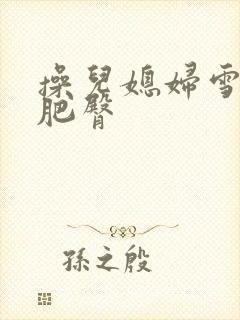 操兒媳婦雪
肥臀
孫之殷